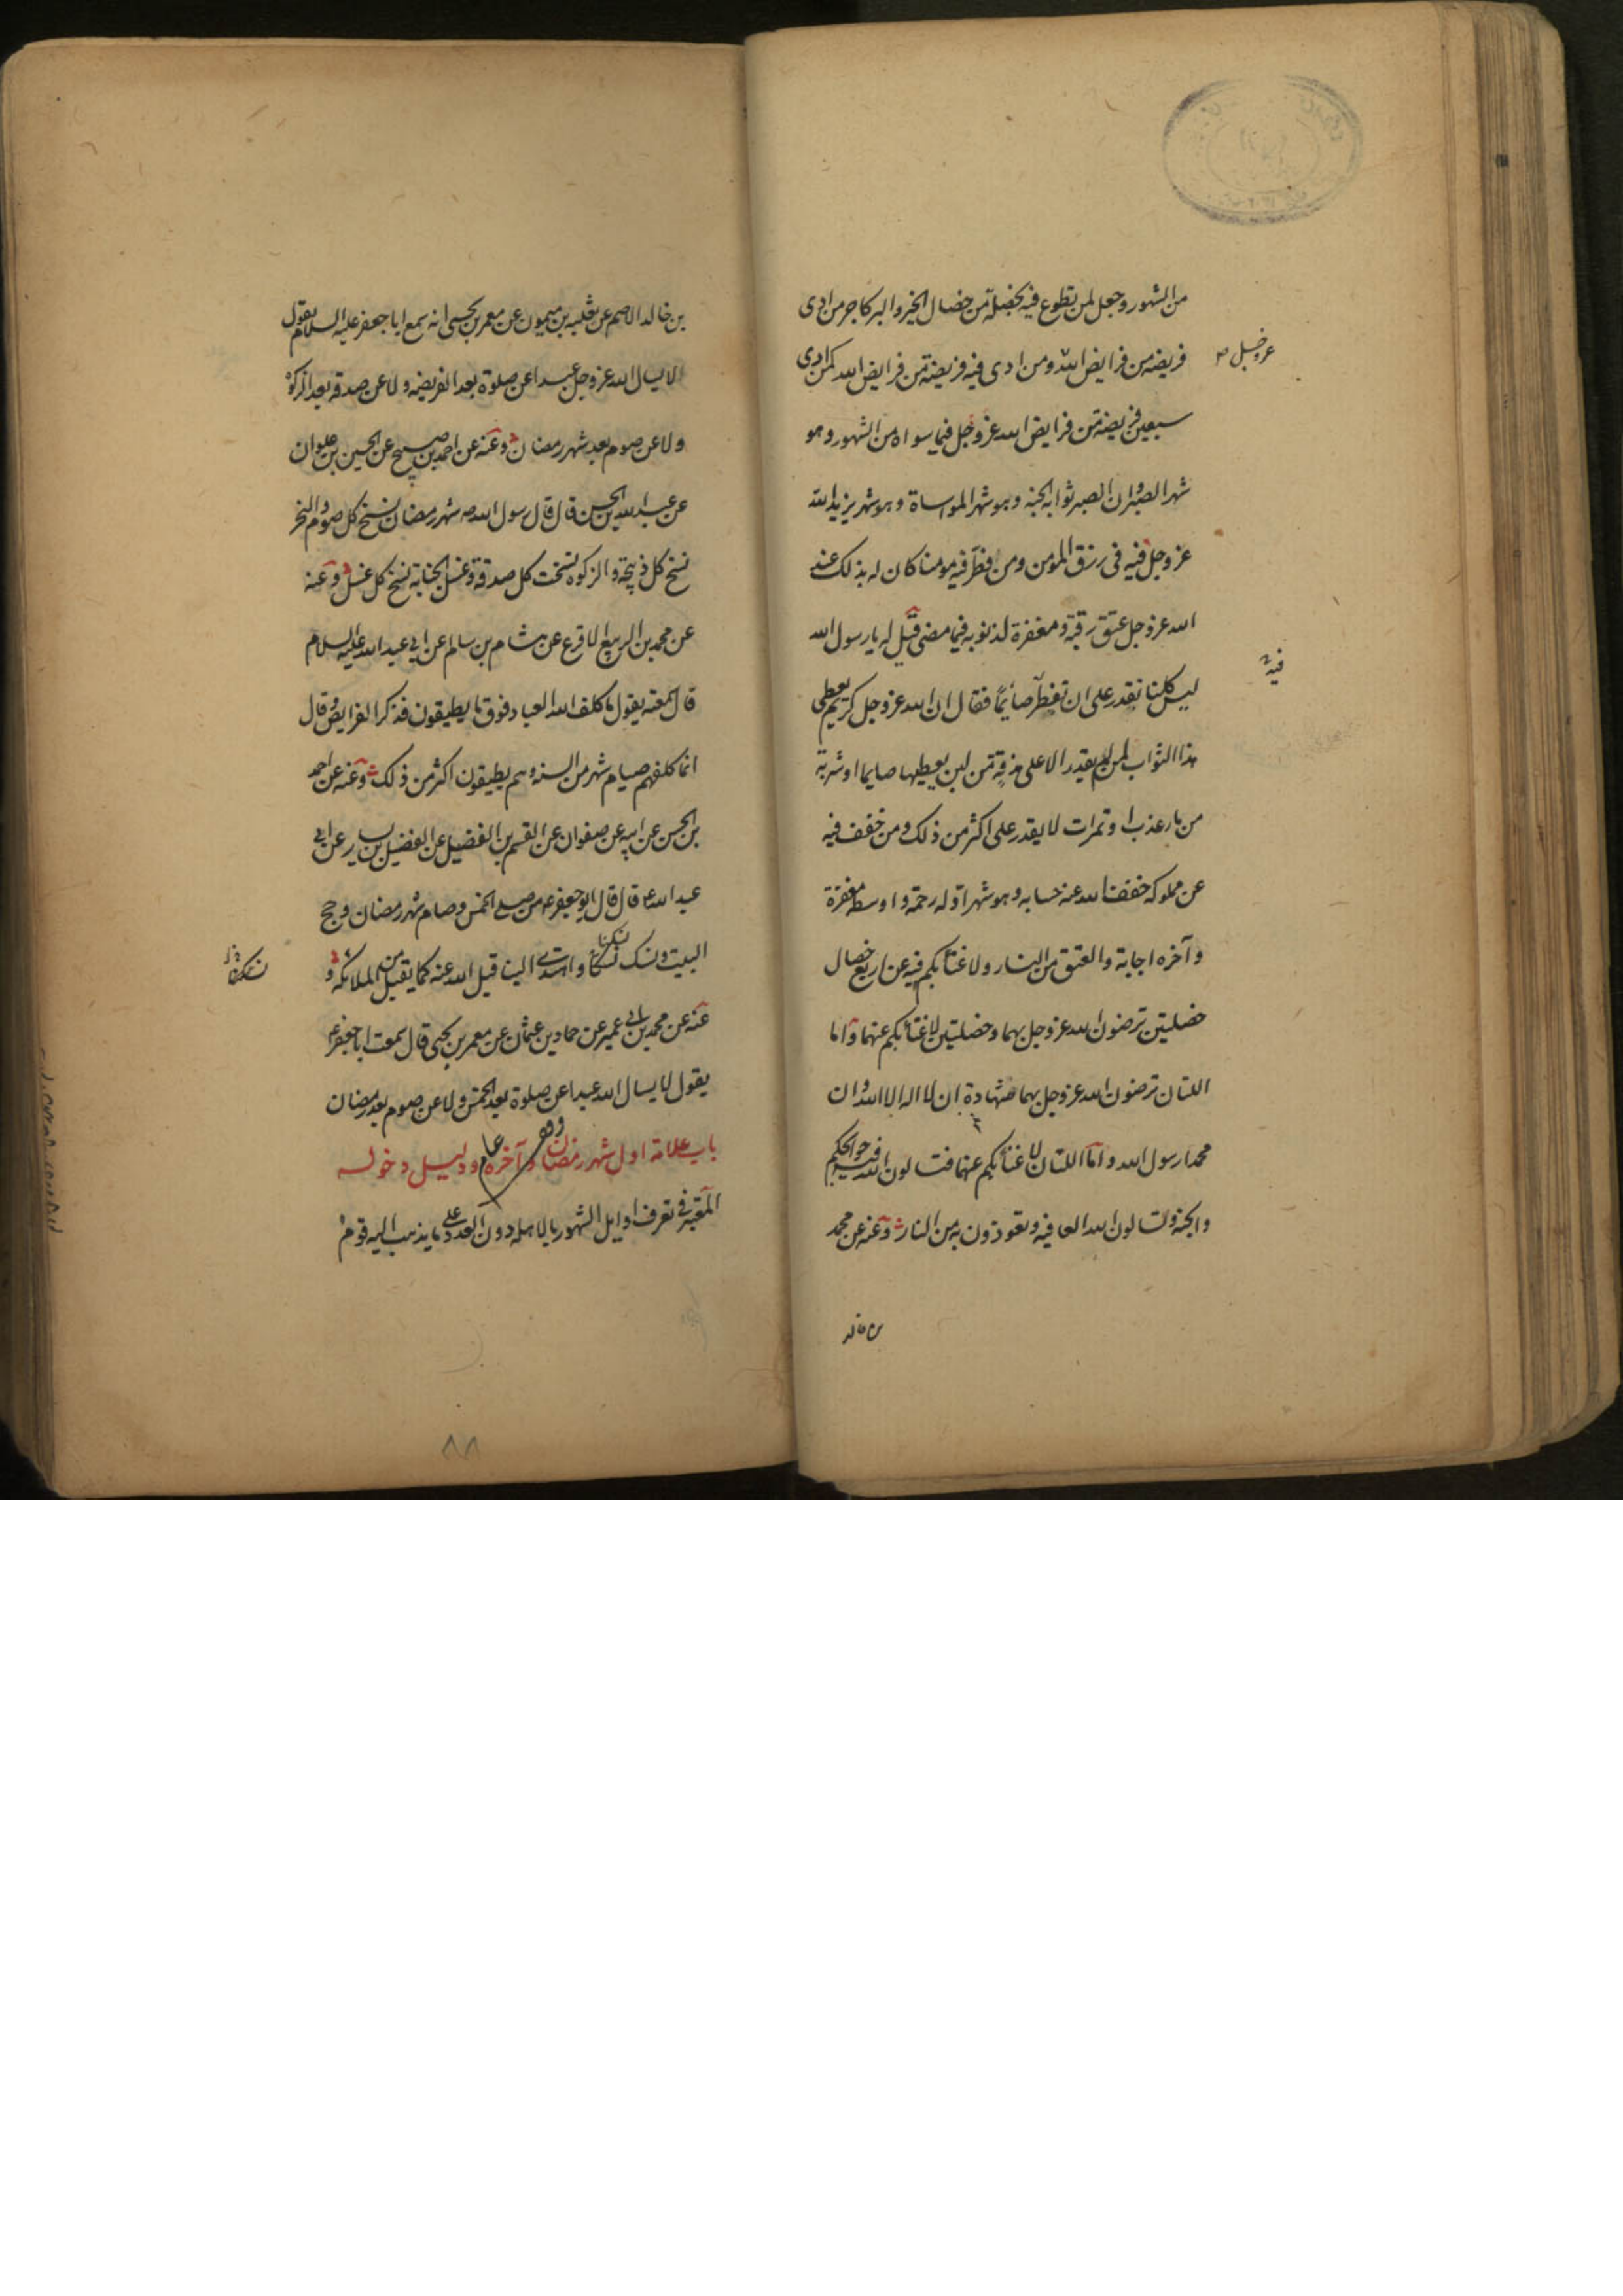 من الشهور وجعل لمن تطوع فيه بخصلة من خصال الخير والبر كاجر من ادى
عز وجل
فريضه من فرايض الله ومن ادى فيه فريضة من فرايض الله كمن ادى
سبعين فريضة من فرايض الله عز وجل فيما سواه من الشهور وهو
شهر الصبر وان الصبر ثوابه الجنه وهو شهر المواساة وهو شهر يزيد الله
عز وجل فيه فى رزق المومن ومن فطر فيه مومنا كان له بذلك عند
الله عز وجل عتق رقبة ومغفرة لذنوبه فيما مضى قيل له يا رسول الله
فيه
ليس كلنا نقدر على ان نفطر صائمًا فقال ان الله عز وجل كريم يعطى
هذا الثواب لمن لم يقدر الا على مذقة من لبن يعطيها صايما او شربة
من ماء عذب او تمرات لا يقدر على اكثر من ذلك ومن خفف فيه
عن مملوكه خفف الله عنه حسابه وهو شهر اوله رحمة واوسطه مغفرة
وآخره اجابة والعتق من النار ولا غنا بكم فيه عن اربع خصال
خصلتين ترضون الله عز وجل بهما وخصلتين لا غنا بكم عنهما واما
اللتان ترضون الله عز وجل بهما فشهادة ان لا اله الا الله وان
محمدا رسول الله واما اللتان لا غنا بكم عنهما فتسالون الله فيه حوايجكم
والجنة وتسالون الله العافيه وتعوذون به من النار وعنه عن محمد
بن خالد
بن خالد الاصم عن ثعلبه بن ميمون عن معمر بن يحيى انه سمع ابا جعفر عليه السلام يقول
لا يسال الله عز وجل عبدا عن صلوة بعد الفريضه ولا عن صدقه بعد الزكوة
ولا عن صوم بعد شهر رمضان وعنه عن احمد بن صبيح عن الحسين بن علوان
عن عبد الله بن الحسن قال قال رسول الله ص شهر رمضان نسخ كل صوم والنحر
نسخ كل ذبيحة والزكوة نسخت كل صدقة وغسل الجنابة نسخ كل غسل وعنه
عن محمد بن الربيع الاقرع عن هشام بن سالم عن ابي عبد الله عليه السلام
قال سمعته يقول ما كلف الله العباد فوق ما يطيقون فذكر الفرايض وقال
انما كلفهم صيام شهر من السنه وهم يطيقون اكثر من ذلك وعنه عن احمد
بن الحسن عن ابيه عن صفوان عن القسم بن الفضيل عن الفضيل بن يسار عن ابي
عبد الله ع قال قال ابو جعفر ع من صلى الخمس وصام شهر رمضان وحج
البيت ونسك نسكنا واهتدى الينا قبل الله عنه كما يقبل من الملائكة و
نسكنا
عنه عن محمد بن ابي عمير عن حماد بن عثمان عن معمر بن يحيى قال سمعت ابا جعفر ع
يقول لا يسال الله عبدا عن صلوة بعد الخمس ولا عن صوم بعد رمضان
باب علامة اول شهر رمضان وآخره ودليل دخوله
المعتبر في تعرف اوايل الشهور بالاهله دون العدد على ما يذهب اليه قوم
٨٨